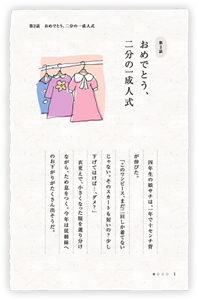 第2話　おめでとう、二分の一成人式
第2話
おめでとう、
二分の一成人式
四年生の娘サチは、一年で十センチ背
が伸びた。
「このワンピース、まだ三回しか着てない
じゃない。そのスカートも短いの？少し
下げてはけば…ダメ？」
衣更えで、小さくなった服を選り分け
ながら、ため息をつく。今年は従姉妹へ
のおさがりがたくさん出そうだ。
1